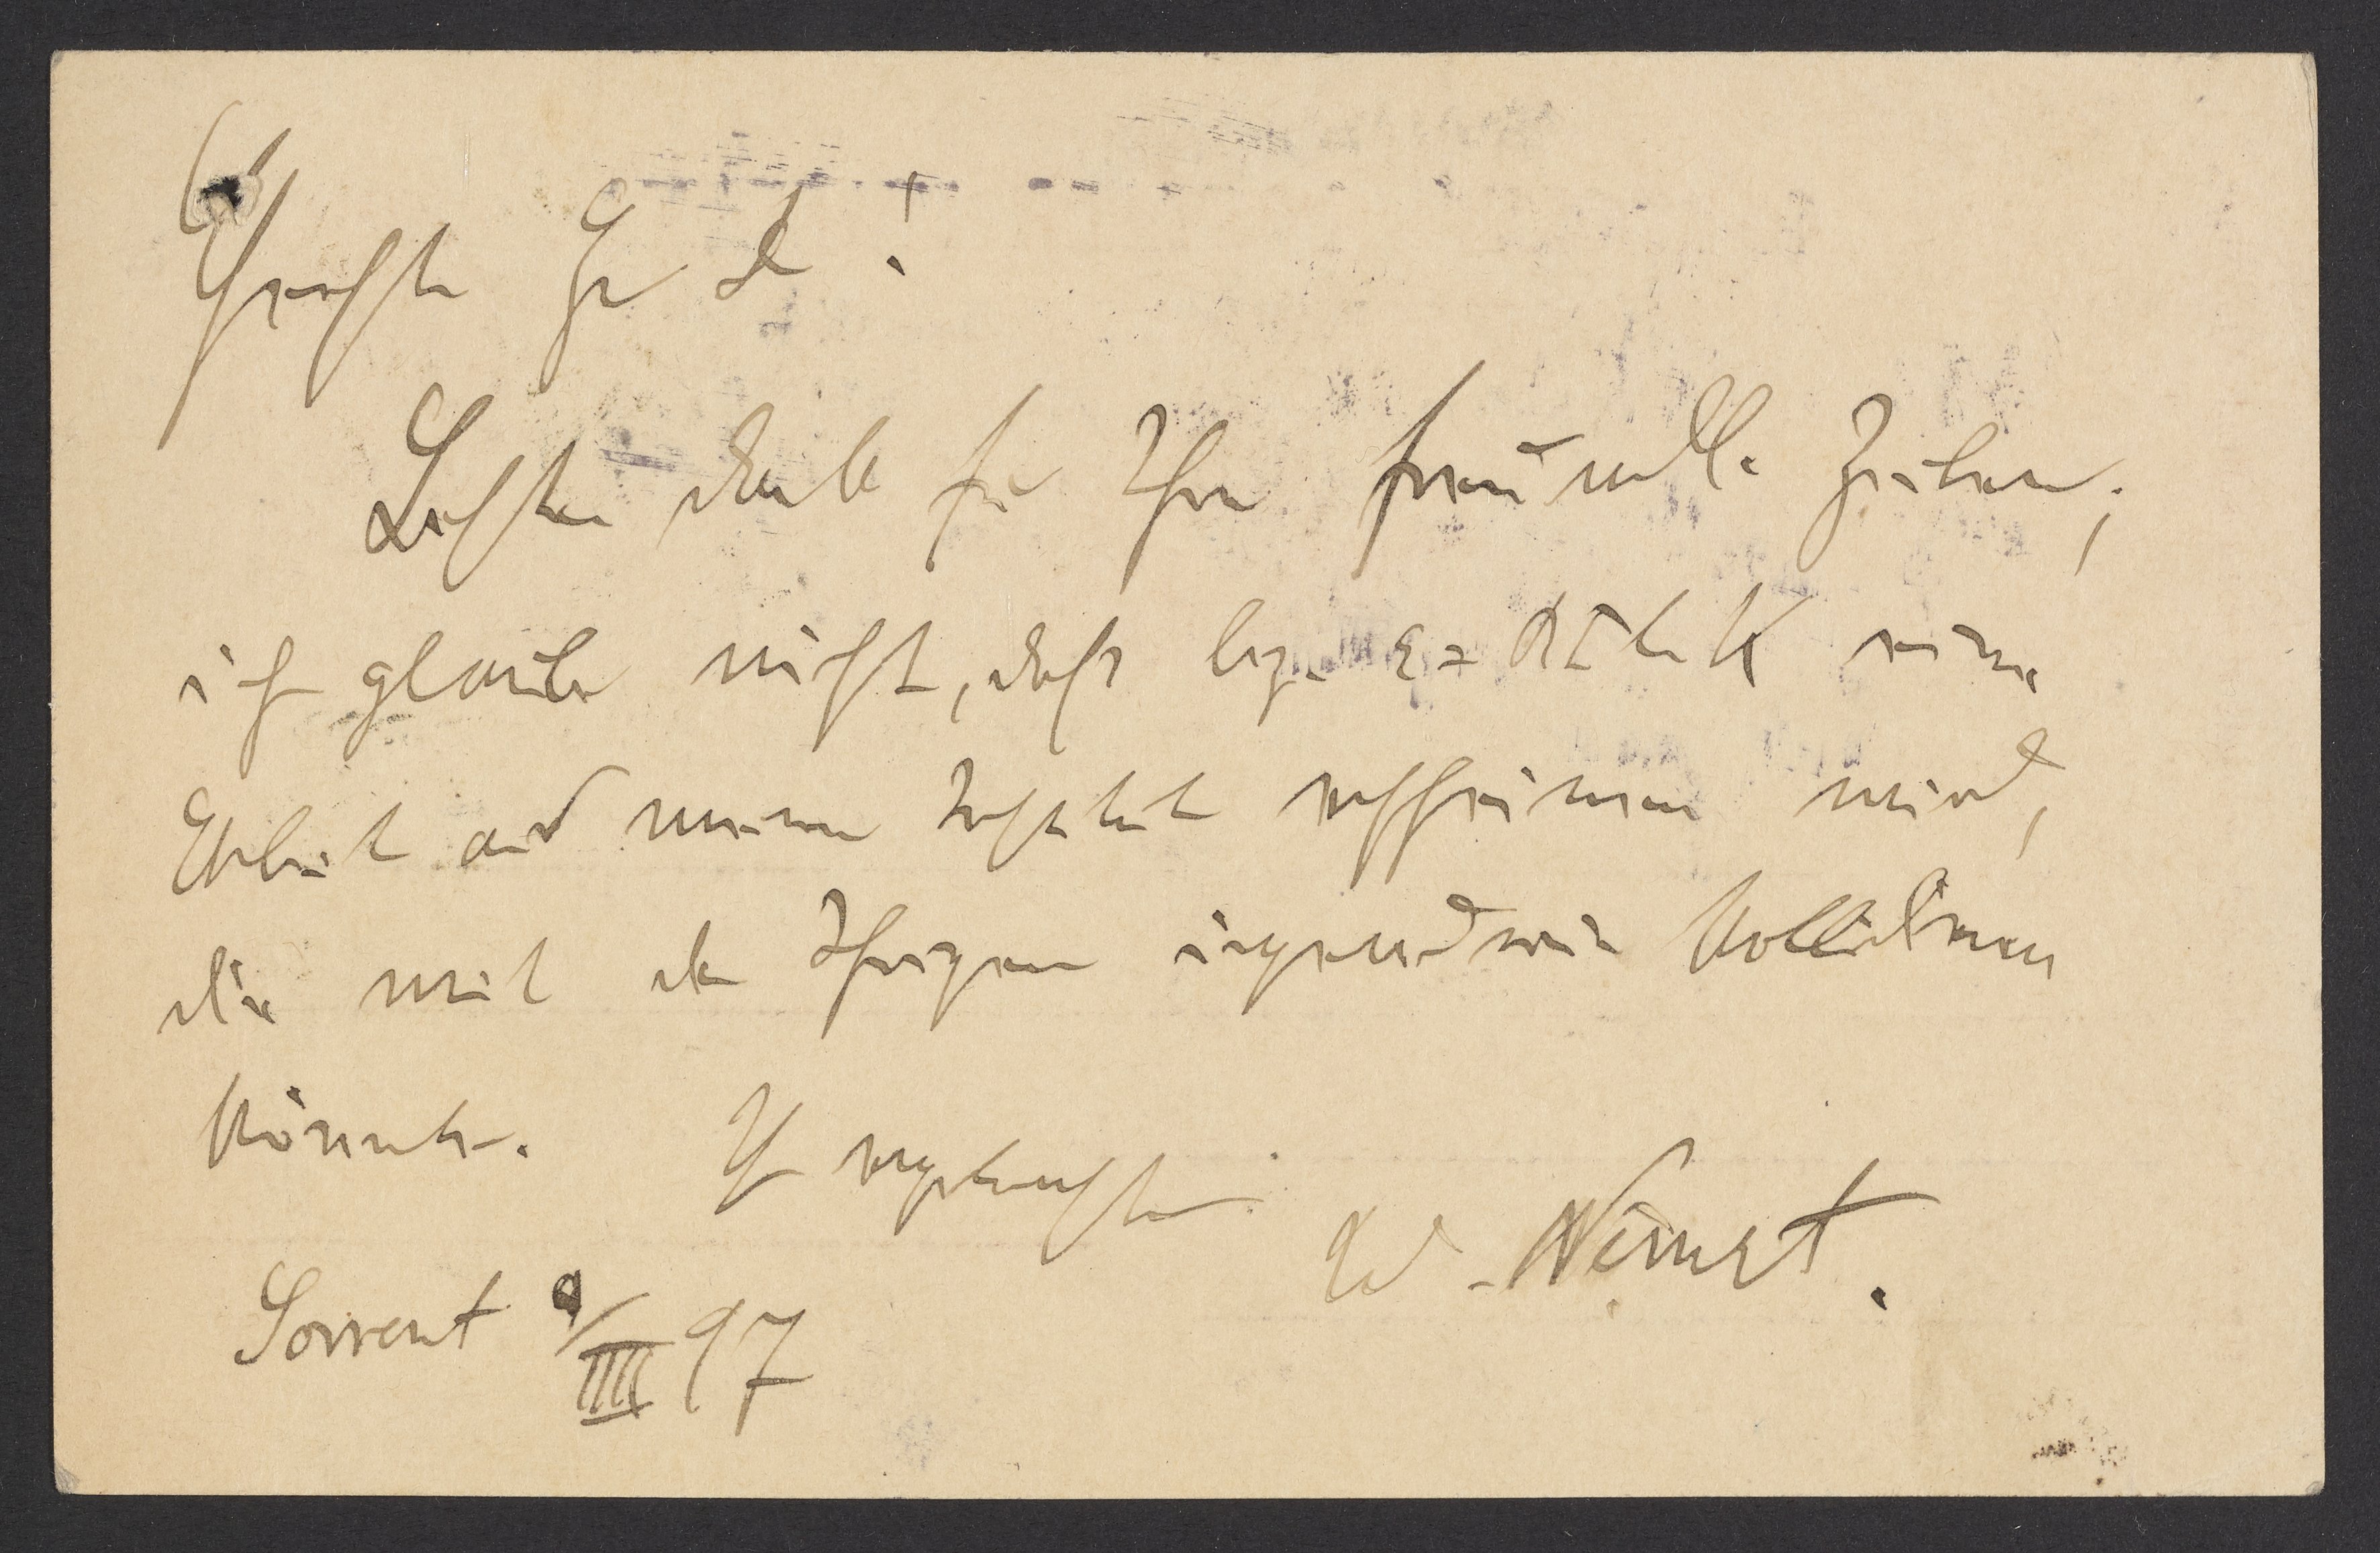 Geehrter Hr Dr!
Besten Dank für Ihre freundlichen Zeilen;
ich glaube nicht, dass bez. ε = RT ln K eine
Arbeit aus meinem Institut erscheinen wird,
die mit der Ihrigen irgendwie kollidiren
könnte. Ihr ergebenster
W. Nernst.
Sorrent 9/III 97